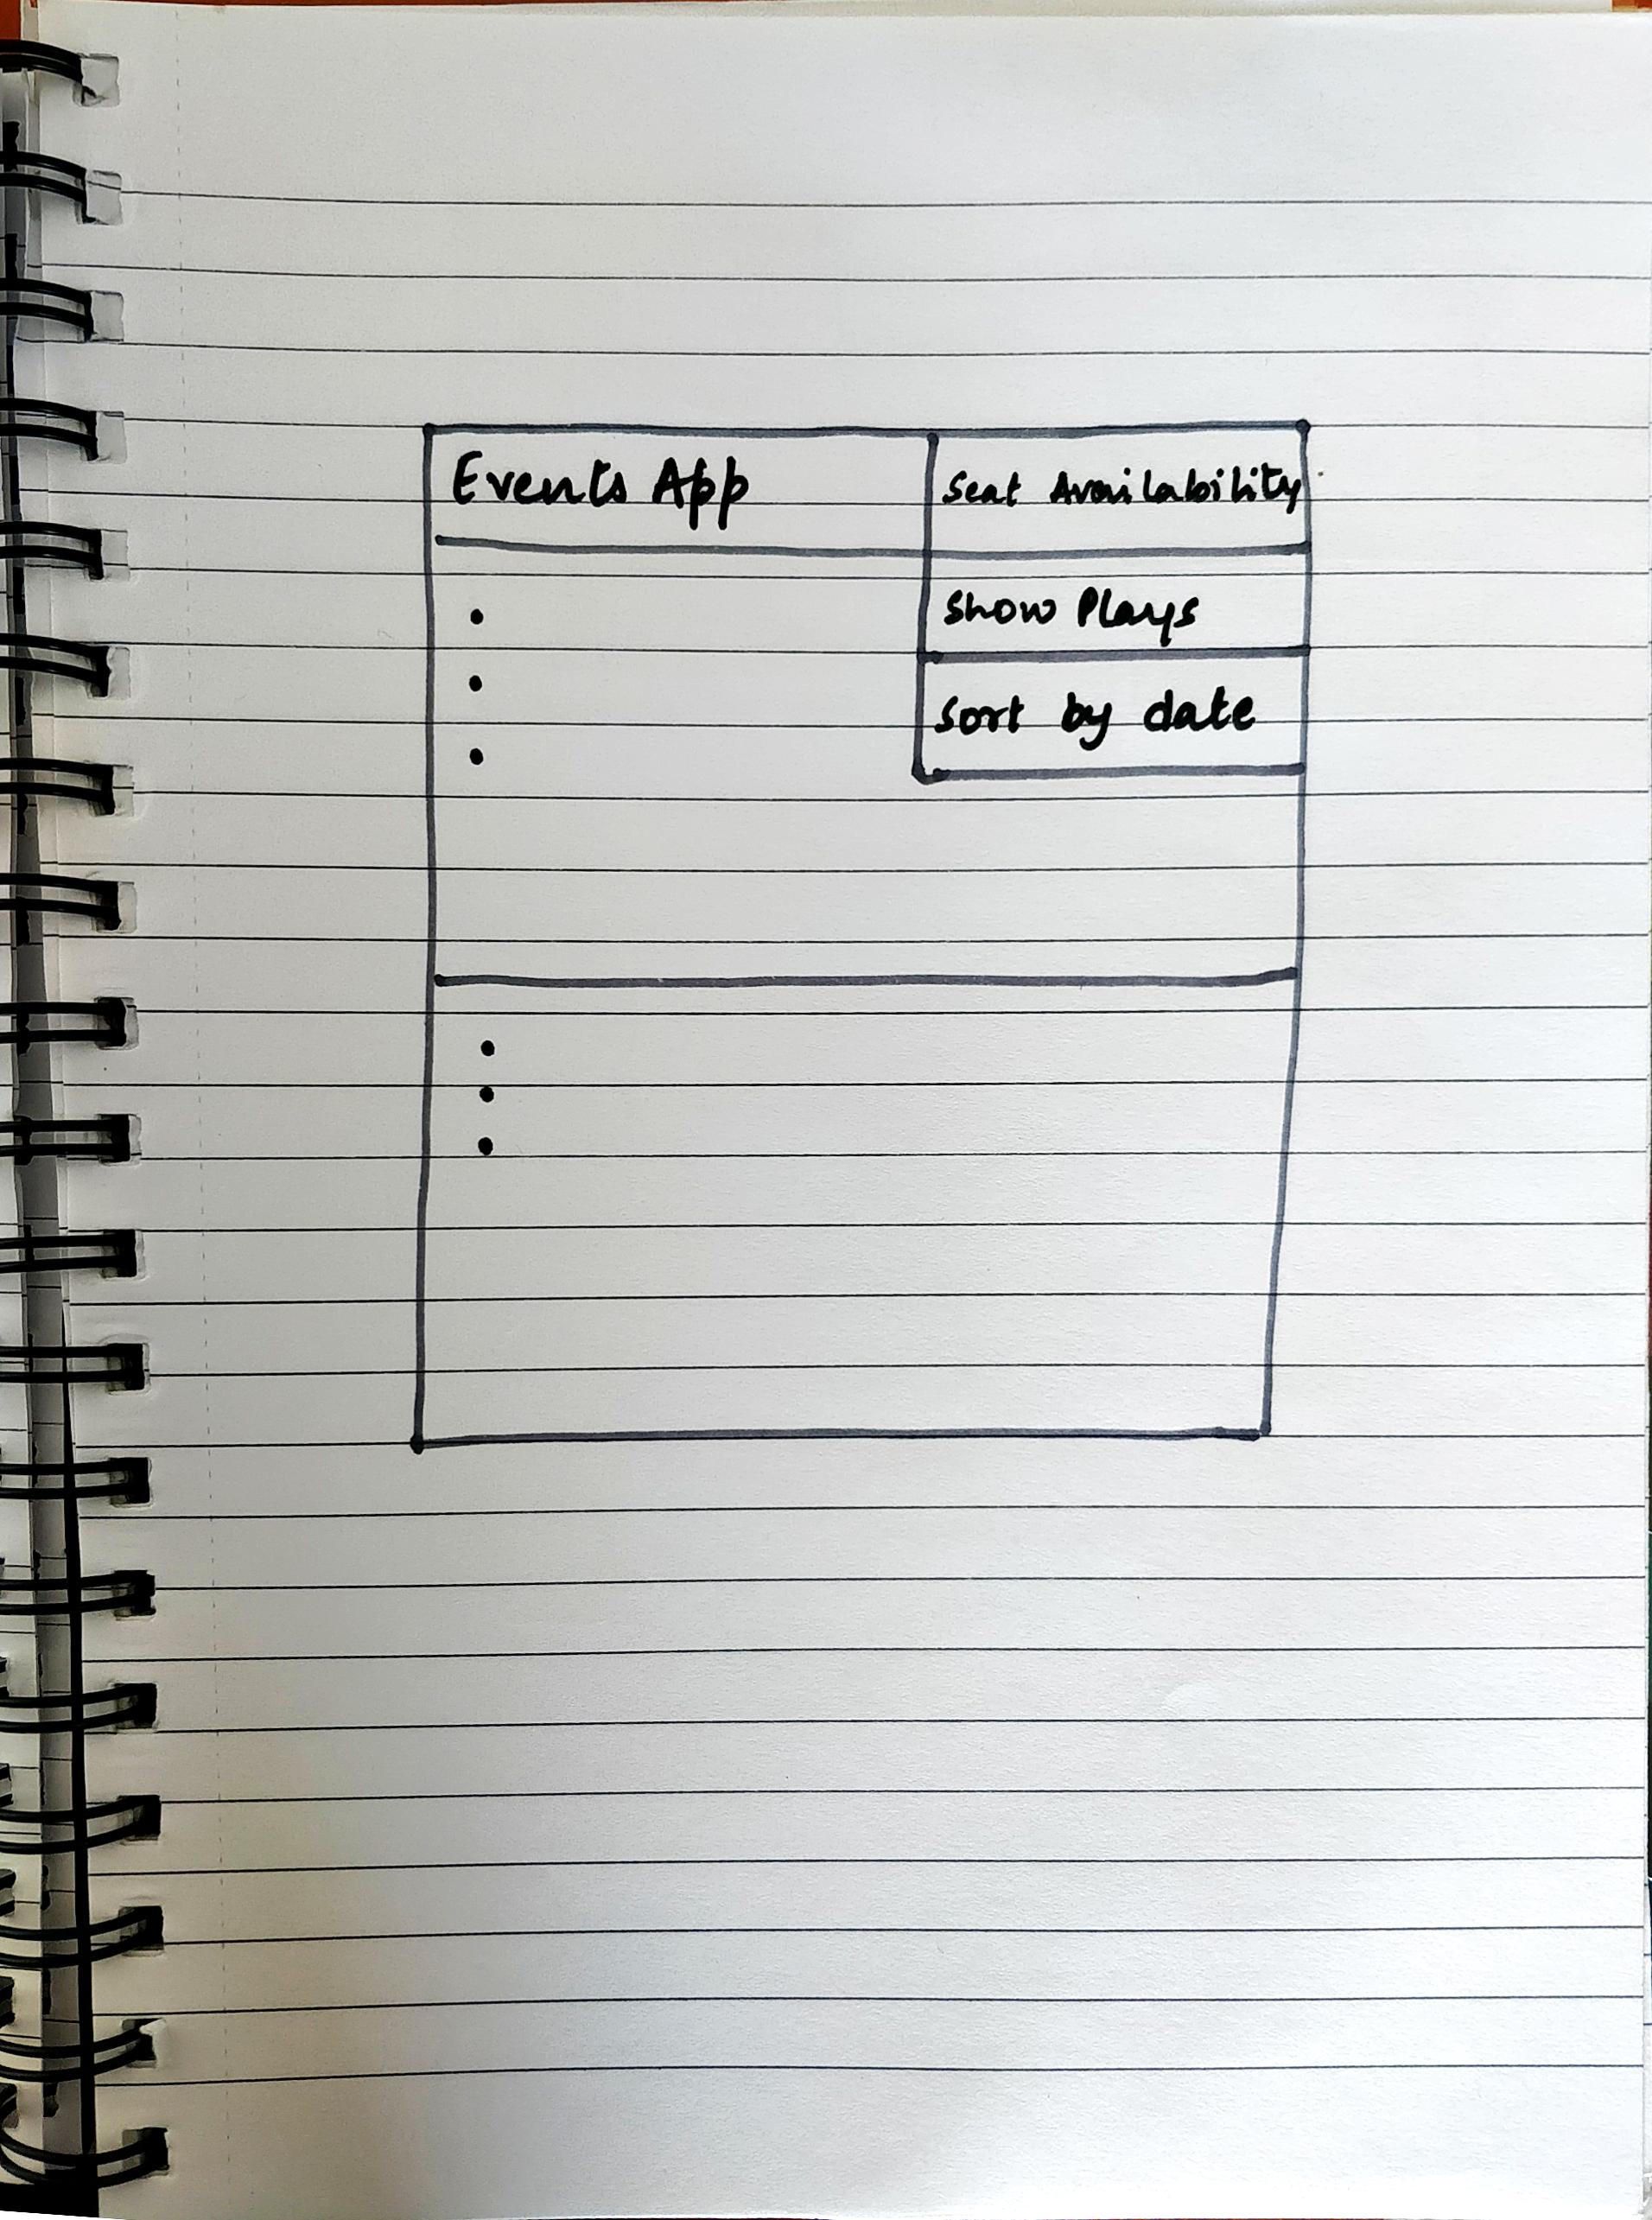 Events App
Seat Availability
Show Plays
Sort by date